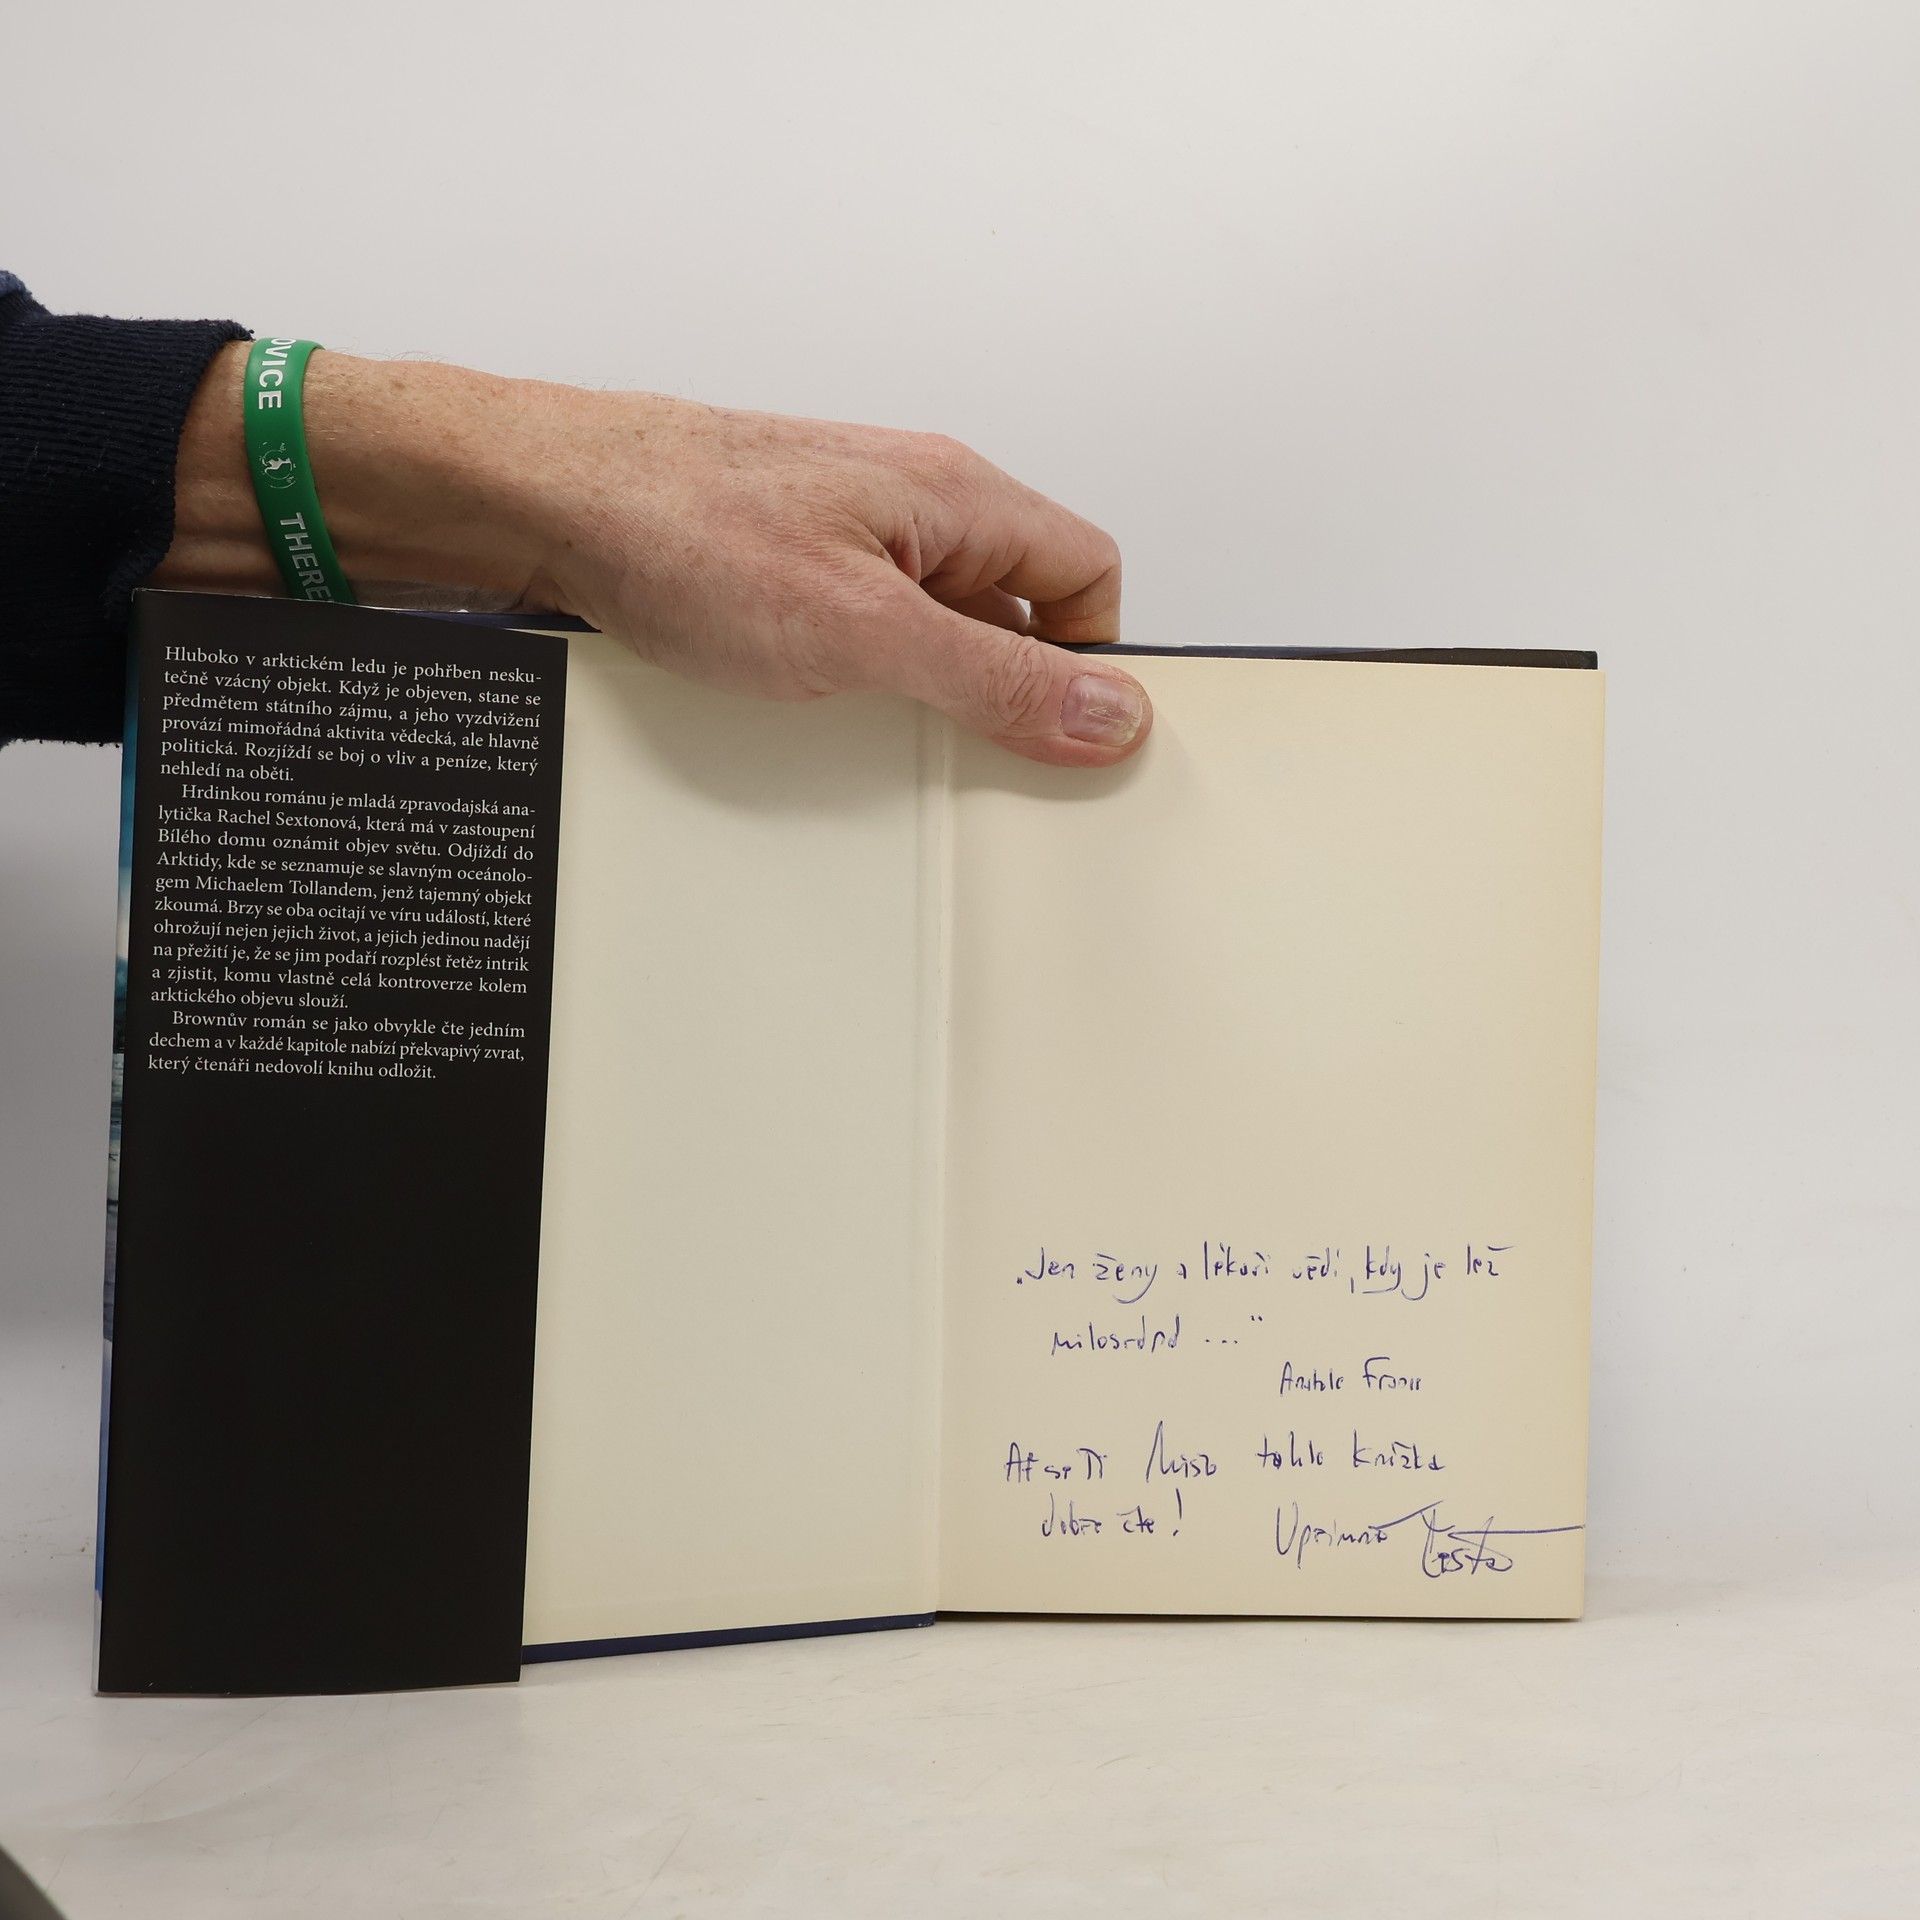 OVICE
THERE
Hluboko v arktickém ledu je pohřben nesku-
tečně vzácný objekt. Když je objeven, stane se
předmětem státního zájmu, a jeho vyzdvižení
provází mimořádná aktivita vědecká, ale hlavně
politická. Rozjíždí se boj o vliv a peníze, který
nehledí na oběti.
Hrdinkou románu je mladá zpravodajská ana-
lytička Rachel Sextonová, která má v zastoupení
Bílého domu oznámit objev světu. Odjíždí do
Arktidy, kde se seznamuje se slavným oceánolo-
gem Michaelem Tollandem, jenž tajemný objekt
zkoumá. Brzy se oba ocitají ve víru událostí, které
ohrožují nejen jejich život, a jejich jedinou nadějí
na přežití je, že se jim podaří rozplést řetěz intrik
a zjistit, komu vlastně celá kontroverze kolem
arktického objevu slouží.
Brownův román se jako obvykle čte jedním
dechem a v každé kapitole nabízí překvapivý zvrat,
který čtenáři nedovolí knihu odložit.
„Jen ženy a lékaři vědí, kdy je lež
milosrdná ..."
Anatole France
Ať se Ti tahle knížka
dobře čte! Upřímně